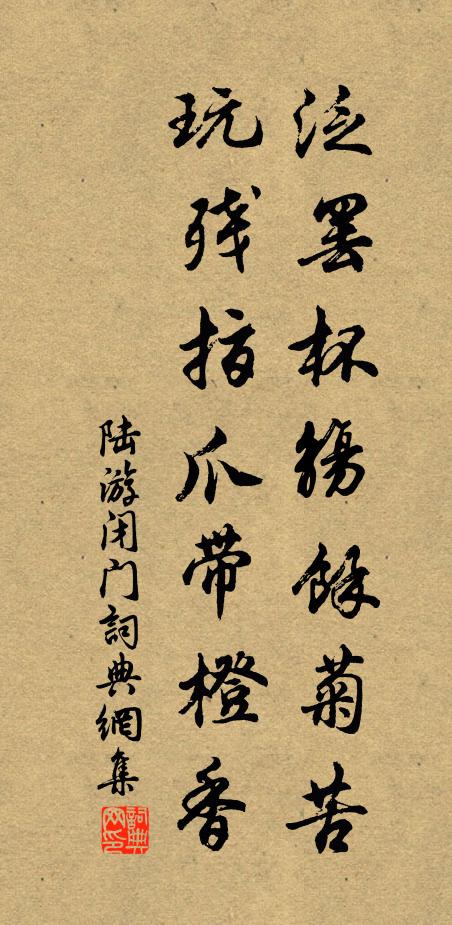 泛罢杯觞馀菊苦
玩残指爪带橙香
陆游闭门词典網集
詞典网印